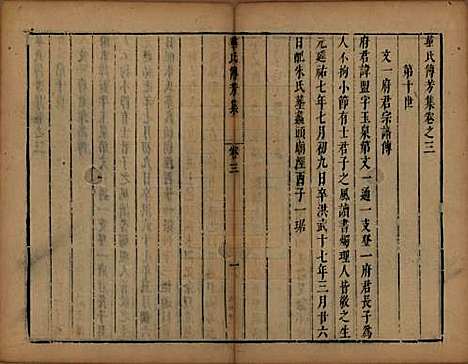 華氏傳芳集卷之三
第十世
文一府君宗譜傳
府君諱盟字玉泉第文一通一支登一府君長子為
人不拘小節有士君子之風讀書燭理人皆敬之生
元延祐七年七月初九日卒洪武十七年三月廿六
日配朱氏墓龜頭廟涇西子一琚
華氏傳芳集
卷三
一